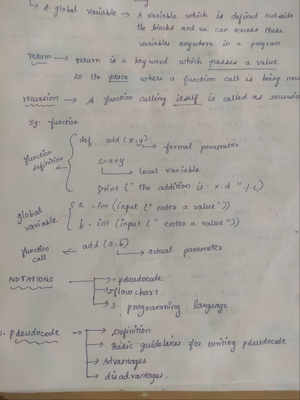 2. global variable → A variable which is defined outside
the blocks and we can excess these
variables anywhere in a program
return → return is a keyword which passes a value
to the place where a function call is being made
recursion → A function calling itself is called as recursion
Eg: function
def add (x,y)
→ formal parameter
function definition
c=x+y
→ local variable
print (" the addition is : %d " % c)
global variable
a = int (input (" enter a value"))
b = int (input (" enter a value"))
function call
add (a,b)
→ actual parameter
NOTATIONS
→ 1 pseudocode
→ 2 flow chart
→ 3. programming language
1. Pseudocode
→ Definition
→ Basic guidelines for writing pseudocode
→ Advantages
→ disadvantages.